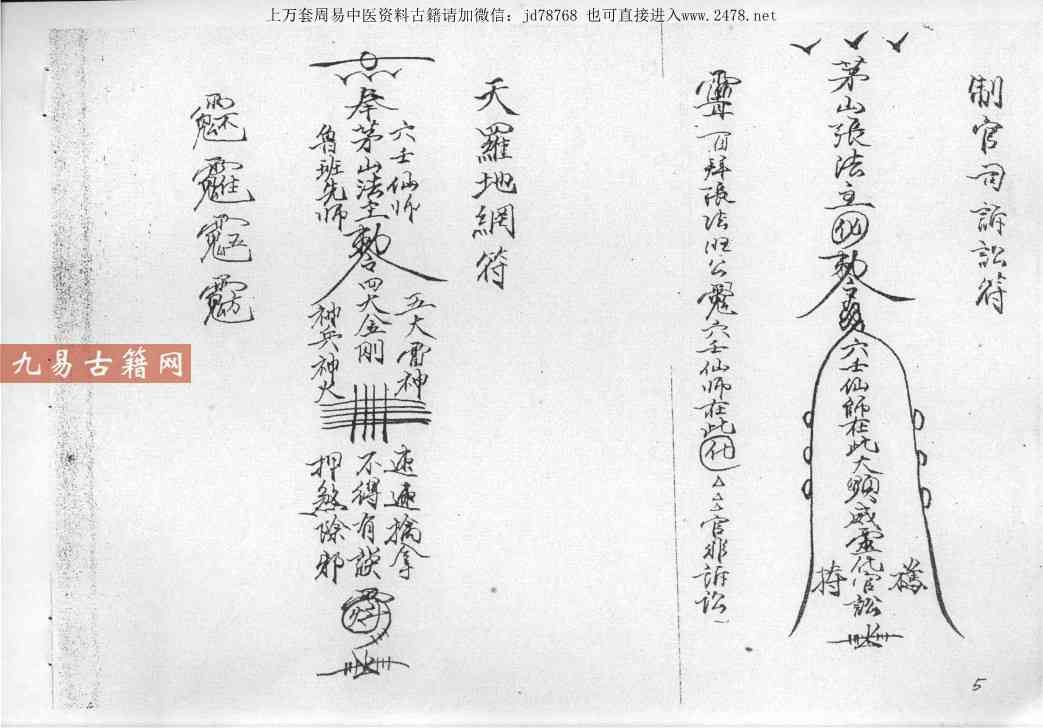 上万套周易中医资料古籍请加微信：jd78768 也可直接进入www.2478.net
制官司訴訟符
茅山張法主化敕令
六壬仙師在此大顯威靈化官訟
百拜張法旺公
六壬仙師在此化△△△官非訴訟
天羅地網符
奉茅山法主敕令四大金刚
六壬仙师
鲁班先师
五大雷神
神兵神火
速速擒拿
不得有誤
押煞除邪
九易古籍网
5